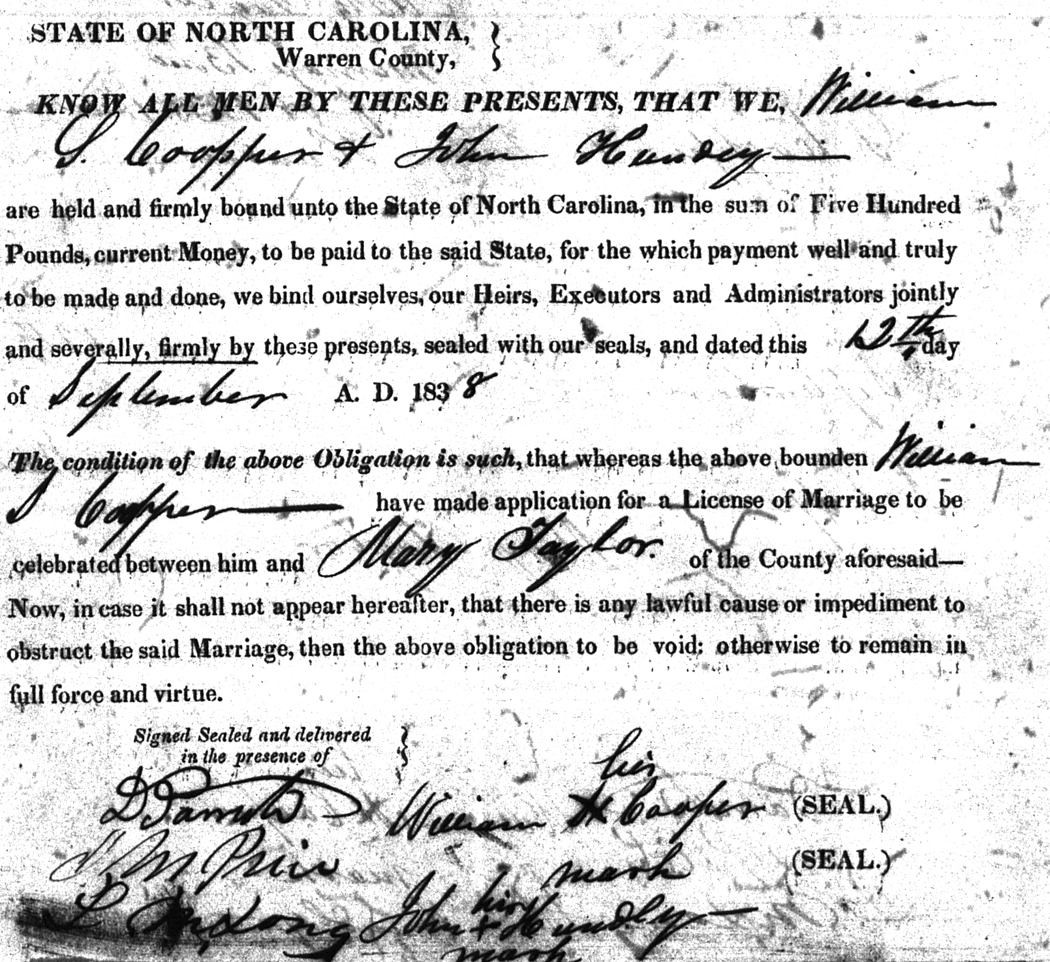 STATE OF NORTH CAROLINA, }
Warren County,
KNOW ALL MEN BY THESE PRESENTS, THAT WE, William
S. Cooper & John Hundey
are held and firmly bound unto the State of North Carolina, in the sum of Five Hundred
Pounds, current Money, to be paid to the said State, for the which payment well and truly
to be made and done, we bind ourselves, our Heirs, Executors and Administrators jointly
and severally, firmly by these presents, sealed with our seals, and dated this 12th day
of September A. D. 1838
The condition of the above Obligation is such, that whereas the above bounden William
S Cooper have made application for a License of Marriage to be
celebrated between him and Mary Taylor. of the County aforesaid—
Now, in case it shall not appear hereafter, that there is any lawful cause or impediment to
obstruct the said Marriage, then the above obligation to be void: otherwise to remain in
full force and virtue.
Signed Sealed and delivered }
in the presence of
his
William X Cooper (SEAL.)
mark
(SEAL.)
his
John + Hundley
mark